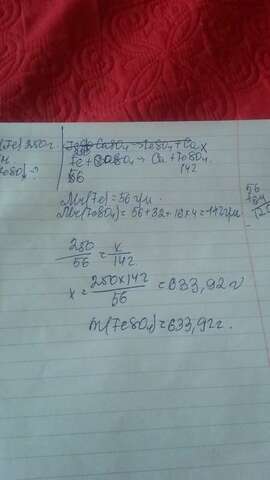 m(Fe) 250г
m(FeSO4)-?
Fe + CuSO4 → Cu + FeSO4
56 142
Mr(Fe) = 56 г/м
Mr(FeSO4) = 56+32+16×4=142г/м
250/56 = x/142
x = 250×142/56 = 633,92 г
m(FeSO4) = 633,92г.